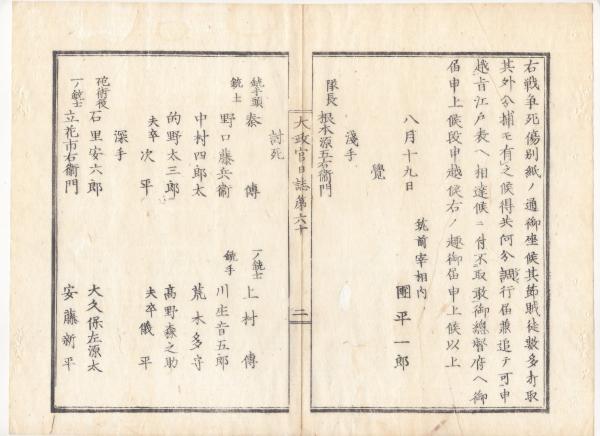 右戦争死傷別紙ノ通御座候其節賊徒数多打取
其外分捕モ有之候得共何分調行届兼追テ可申
越旨江戸表ヘ相達候ニ付不取敢御総督府ヘ御
届申上候段申越候右ノ趣御届申上候以上
筑前宰相内
八月十九日 團平一郎
覺
淺手
隊長 根本源五右衛門
大政官日誌第六十 二
討死
銃手頭 泰傳 一ノ銃士 上村傳
銃士 野口藤兵衞 銃手 川生音五郎
中村四郎太 荒木多守
的野太三郎 高野森之助
夫卒 次平 夫卒 儀平
深手
砲術役 石里安六郎 大久保左源太
一ノ銃士 立花市右衞門 安藤新平